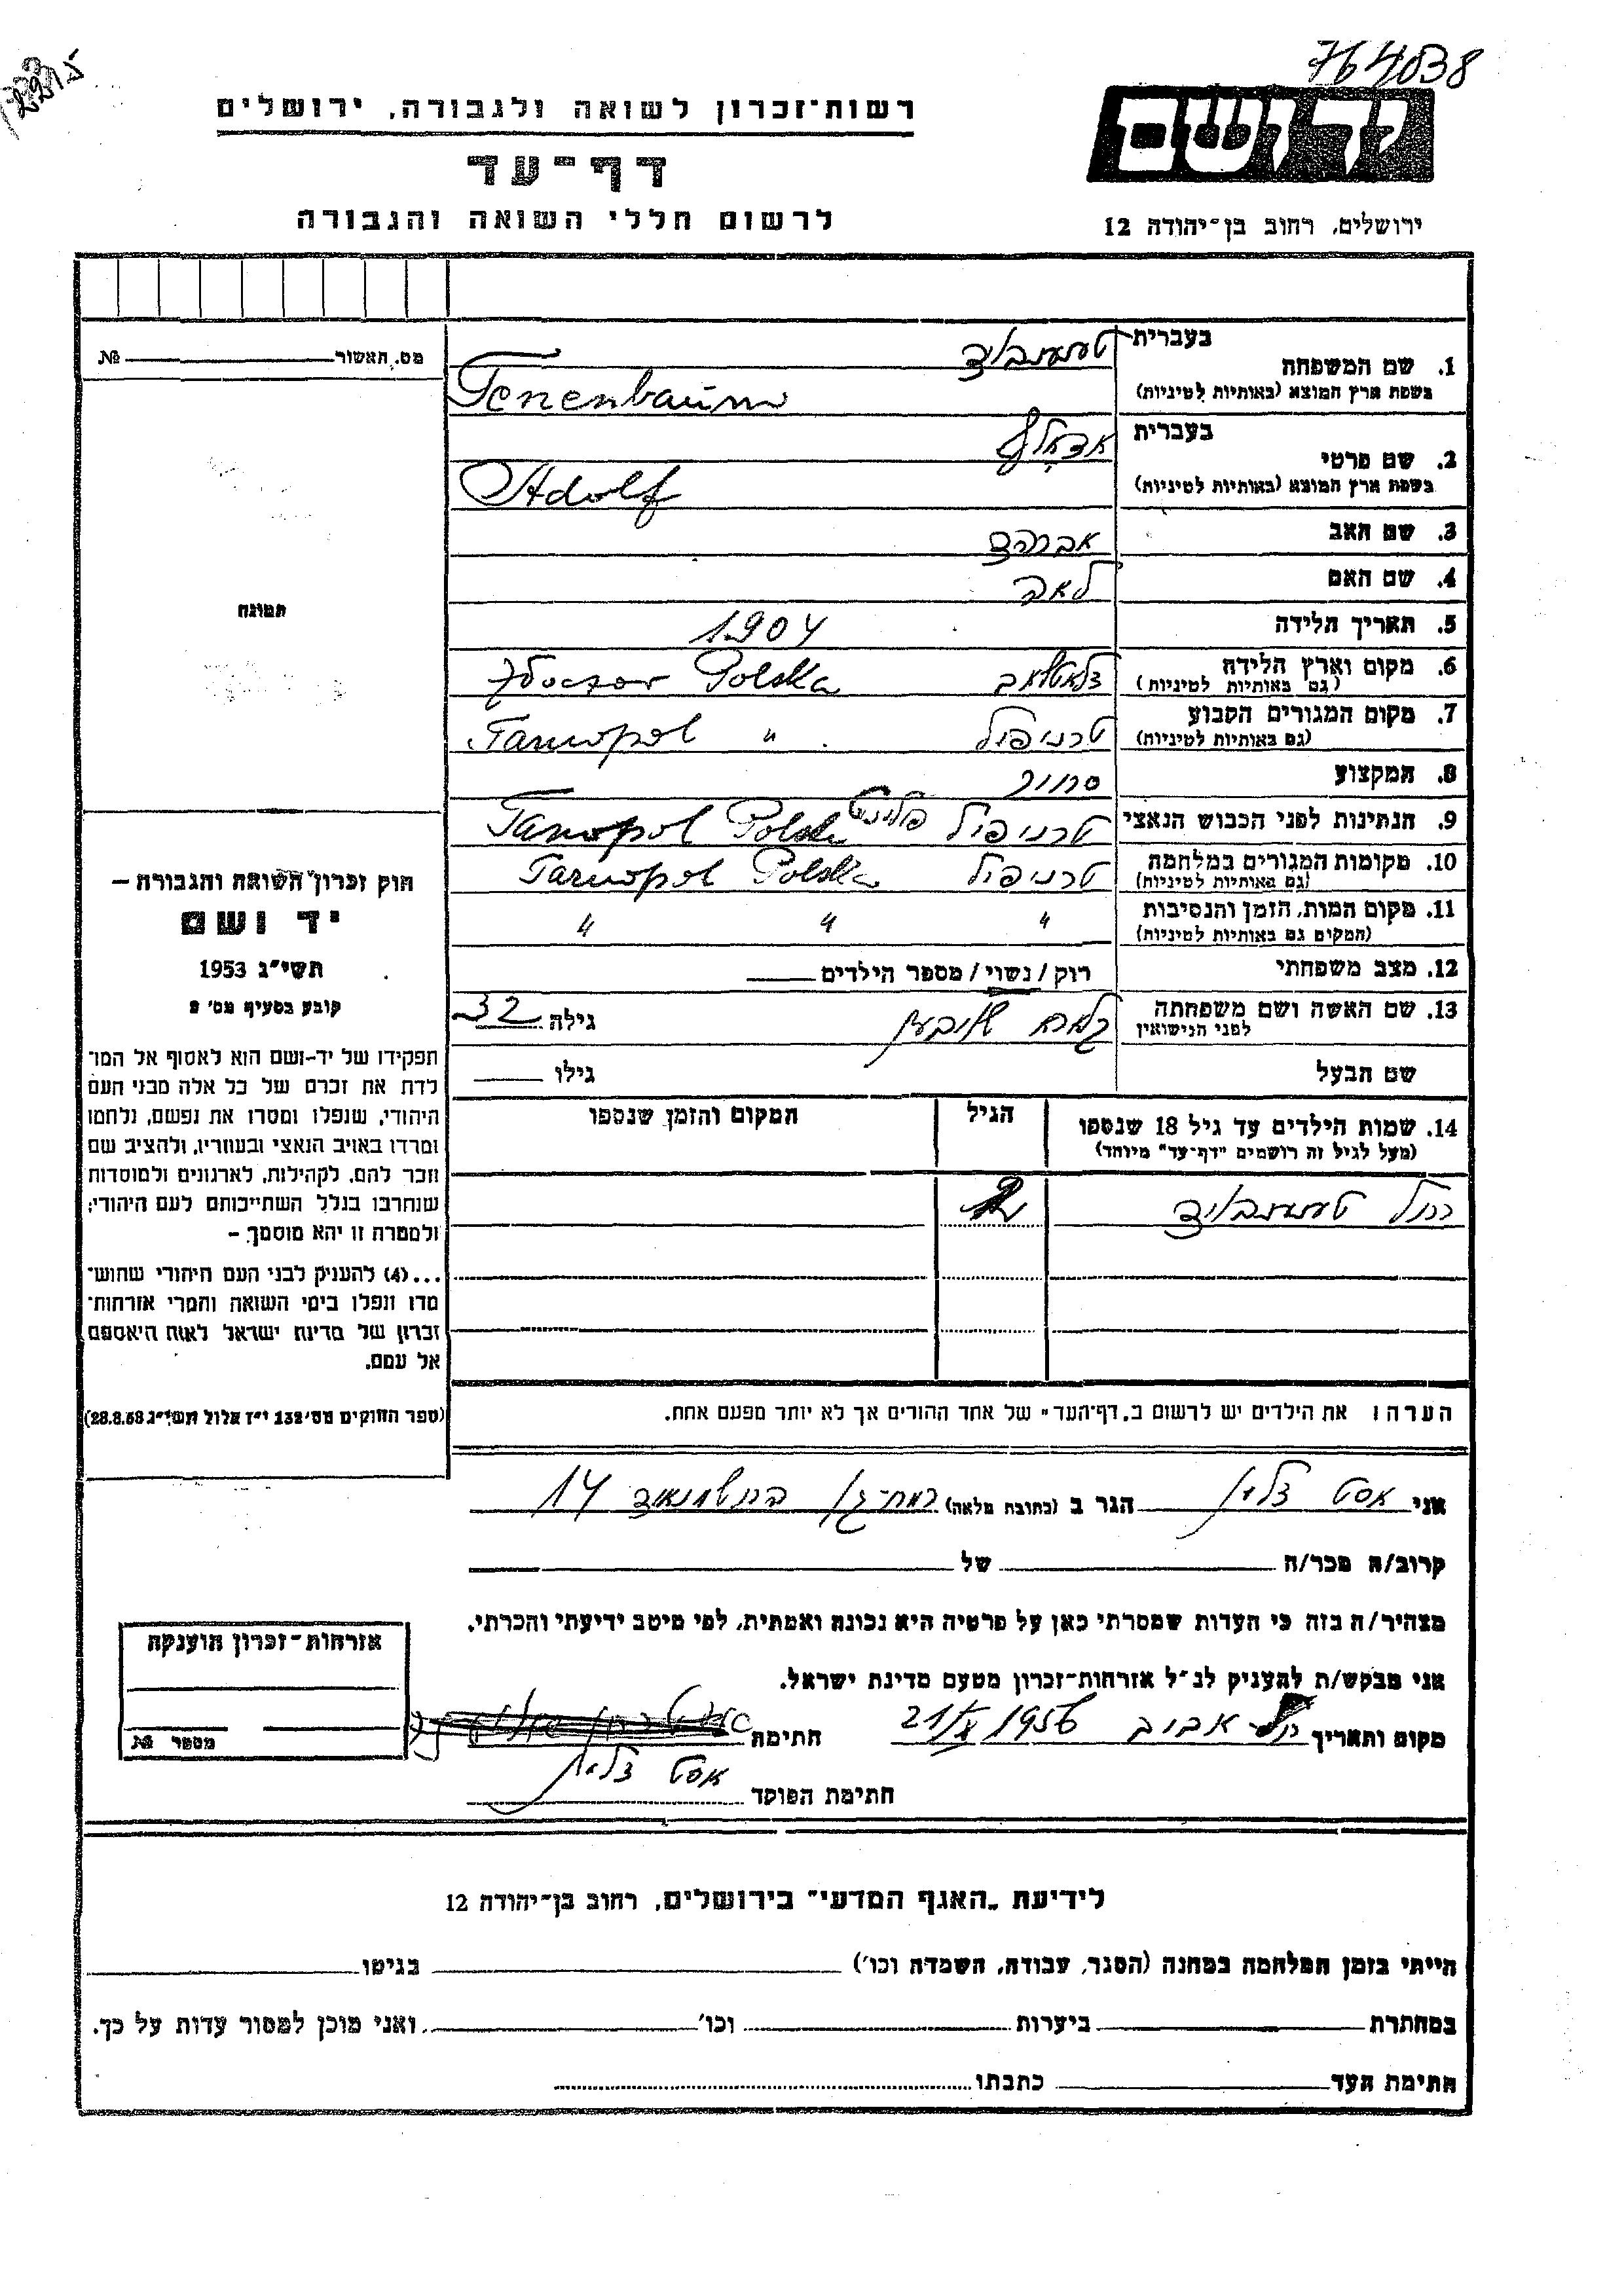 764038
רשות־זכרון לשואה ולגבורה, ירושלים
יד ושם
דף־עד
לרשום חללי השואה והגבורה
ירושלים, רחוב בן־יהודה 12
מס. האשור № 
1. שם המשפחה בעברית
בשפת ארץ המוצא (באותיות לטיניות)
Tenenbaum
2. שם פרטי בעברית אדאלף
בשפת ארץ המוצא (באותיות לטיניות)
Adolf
3. שם האב אברהם
4. שם האם לאה
5. תאריך הלידה 1904
6. מקום וארץ הלידה
(גם באותיות לטיניות) Polska
7. מקום המגורים הקבוע טרניפול
(גם באותיות לטיניות) Tarnopol "
8. המקצוע סוחר
9. הנתינות לפני הכבוש הנאצי טרניפול Tarnopol Polska
10. מקומות המגורים במלחמה טרניפול
(גם באותיות לטיניות) Tarnopol Polska
11. מקום המות, הזמן והנסיבות " " "
(המקום גם באותיות לטיניות)
12. מצב משפחתי רוק / נשוי / מספר הילדים
13. שם האשה ושם משפחתה
לפני הנישואין
גילה 32
שם הבעל גילו
14. שמות הילדים עד גיל 18 שנספו הגיל המקום והזמן שנספו
(מעל לגיל זה רושמים "דף־עד" מיוחד)
תמונה
חוק זכרון השואה והגבורה –
יד ושם
תשי״ג 1953
קובע בסעיף מס׳ 2
תפקידו של יד-ושם הוא לאסוף אל המו־
לדת את זכרם של כל אלה מבני העם
היהודי, שנפלו ומסרו את נפשם, נלחמו
ומרדו באויב הנאצי ובעוזריו, ולהציב שם
וזכר להם, לקהילות, לארגונים ולמוסדות
שנחרבו בגלל השתייכותם לעם היהודי;
ולמטרה זו יהא מוסמך: –
...(4) להעניק לבני העם היהודי שהוש־
מדו ונפלו בימי השואה והמרי אזרחות־
זכרון של מדינת ישראל לאות היאספם
אל עמם.
(ספר החוקים מס׳ 132 י״ז אלול תשי״ג 28.8.53)
הערה: את הילדים יש לרשום ב„דף־העד״ של אחד ההורים אך לא יותר מפעם אחת.
אני הגר ב (כתובת מלאה) רמת־גן 14
קרוב/ה מכר/ה של
מצהיר/ה בזה כי העדות שמסרתי כאן על פרטיה היא נכונה ואמתית, לפי מיטב ידיעתי והכרתי.
אני מבקש/ת להעניק לנ״ל אזרחות־זכרון מטעם מדינת ישראל.
מקום ותאריך תל־אביב 1956 חתימה
חתימת הפוקד
אזרחות־זכרון הוענקה
מספר №
לידיעת „האגף המדעי״ בירושלים, רחוב בן־יהודה 12
הייתי בזמן המלחמה במחנה (הסגר, עבודה, השמדה וכו׳) בגיטו
במחתרת ביערות וכו׳ ואני מוכן למסור עדות על כך.
חתימת העד כתבתו